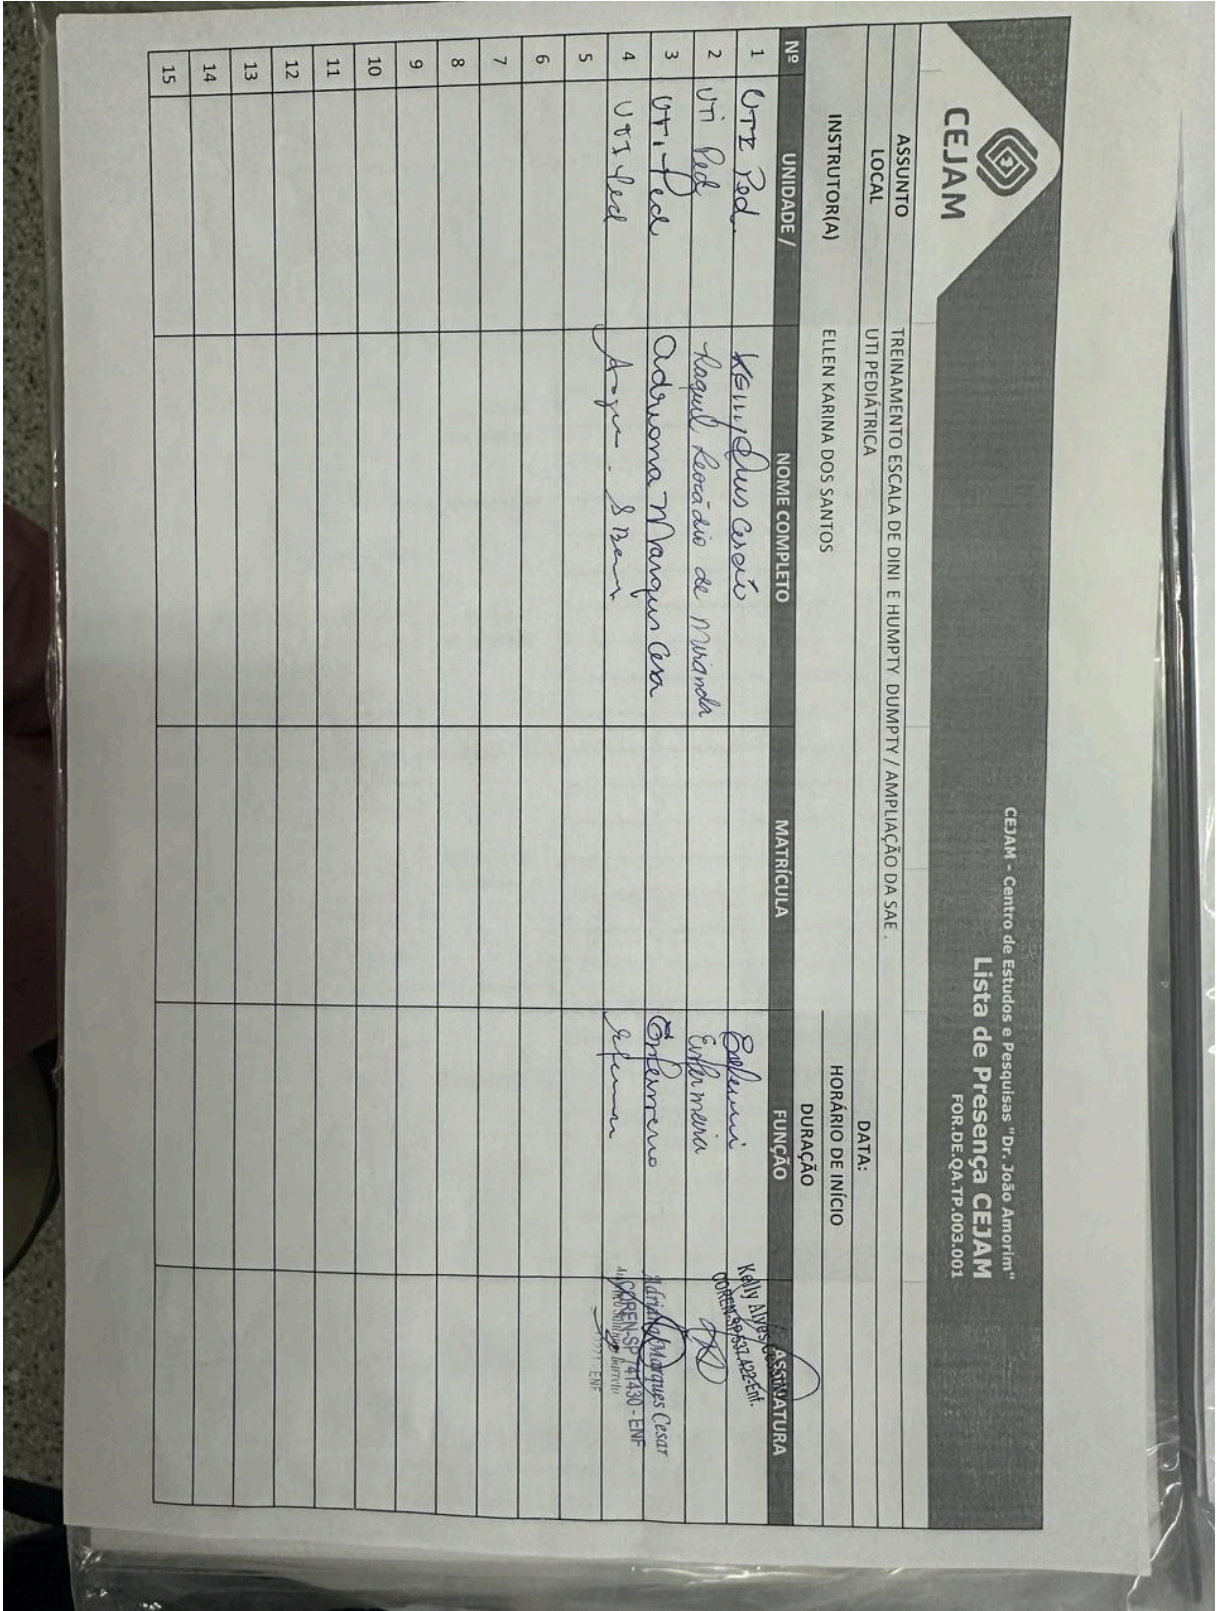 CEJAM
CEJAM - Centro de Estudos e Pesquisas "Dr. João Amorim"
Lista de Presença CEJAM
FOR.DE.QA.TP.003.001
ASSUNTO TREINAMENTO ESCALA DE DINI E HUMPTY DUMPTY / AMPLIAÇÃO DA SAE .
LOCAL UTI PEDIÁTRICA DATA:
INSTRUTOR(A) ELLEN KARINA DOS SANTOS HORÁRIO DE INÍCIO
DURAÇÃO
Nº UNIDADE / NOME COMPLETO MATRÍCULA FUNÇÃO ASSINATURA
1 UTI Ped. Kelly Kelly Alves
COREN-SP 537.422-Enf.
2 UTI Ped Raquel Leocádio de Miranda Enfermeira
3 UTI Ped Adriana Marques Cesar Enfermeiro Adriana Marques Cesar
COREN-SP 741430 - ENF
4 UTI Ped
5
6
7
8
9
10
11
12
13
14
15